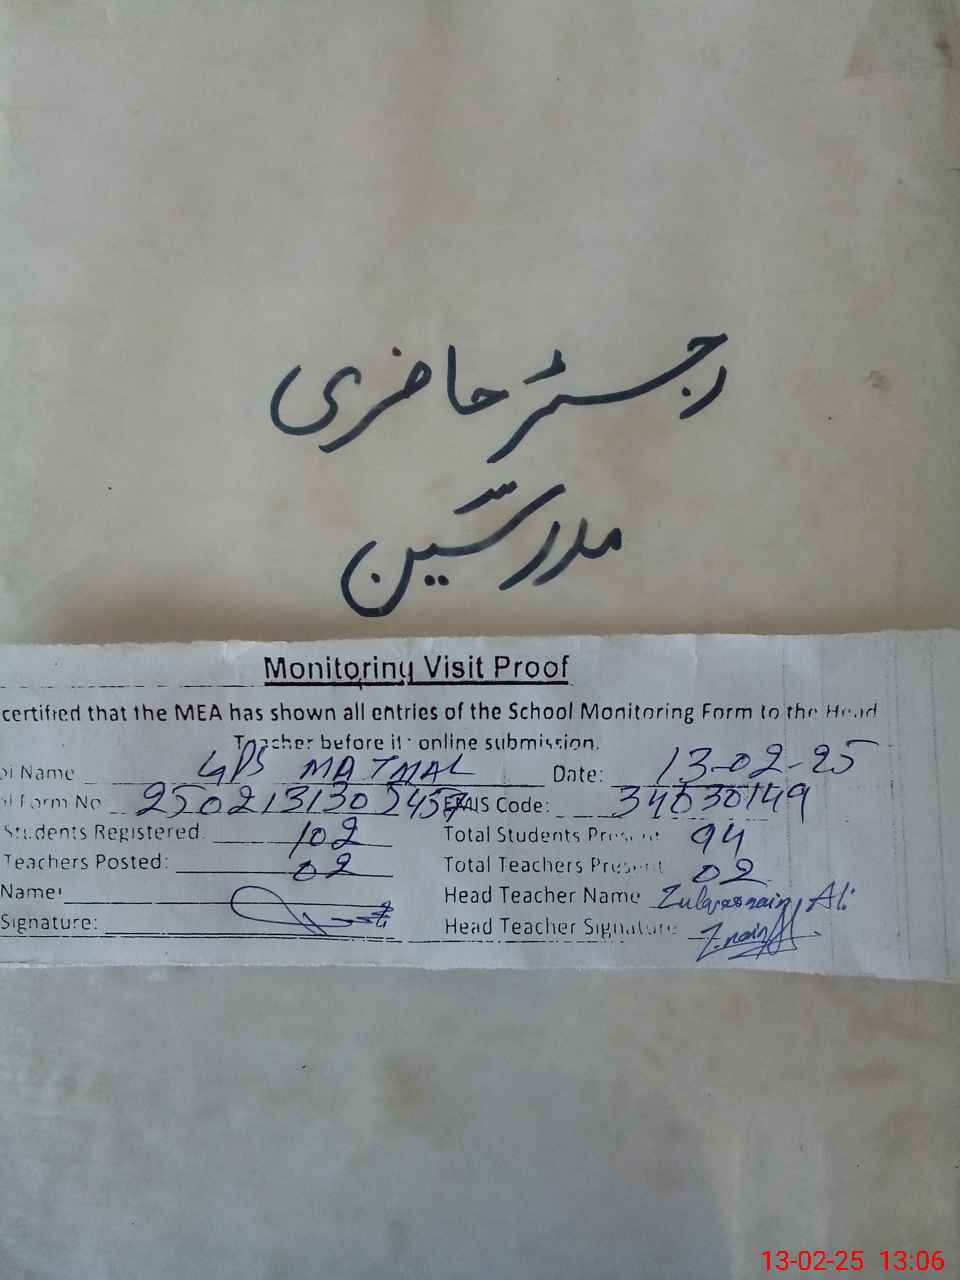 رجسٹر حاضری
مدرسین
Monitoring Visit Proof
certified that the MEA has shown all entries of the School Monitoring Form to the Head
Teacher before its online submission.
Name GPS MATMAL Date: 13-02-25
Form No 250213130 EMIS Code: 34030149
Students Registered: 102 Total Students Present 94
Teachers Posted: 02 Total Teachers Present 02
Name: Head Teacher Name Zulqarnain Ali
Signature: Head Teacher Signature
13-02-25 13:06